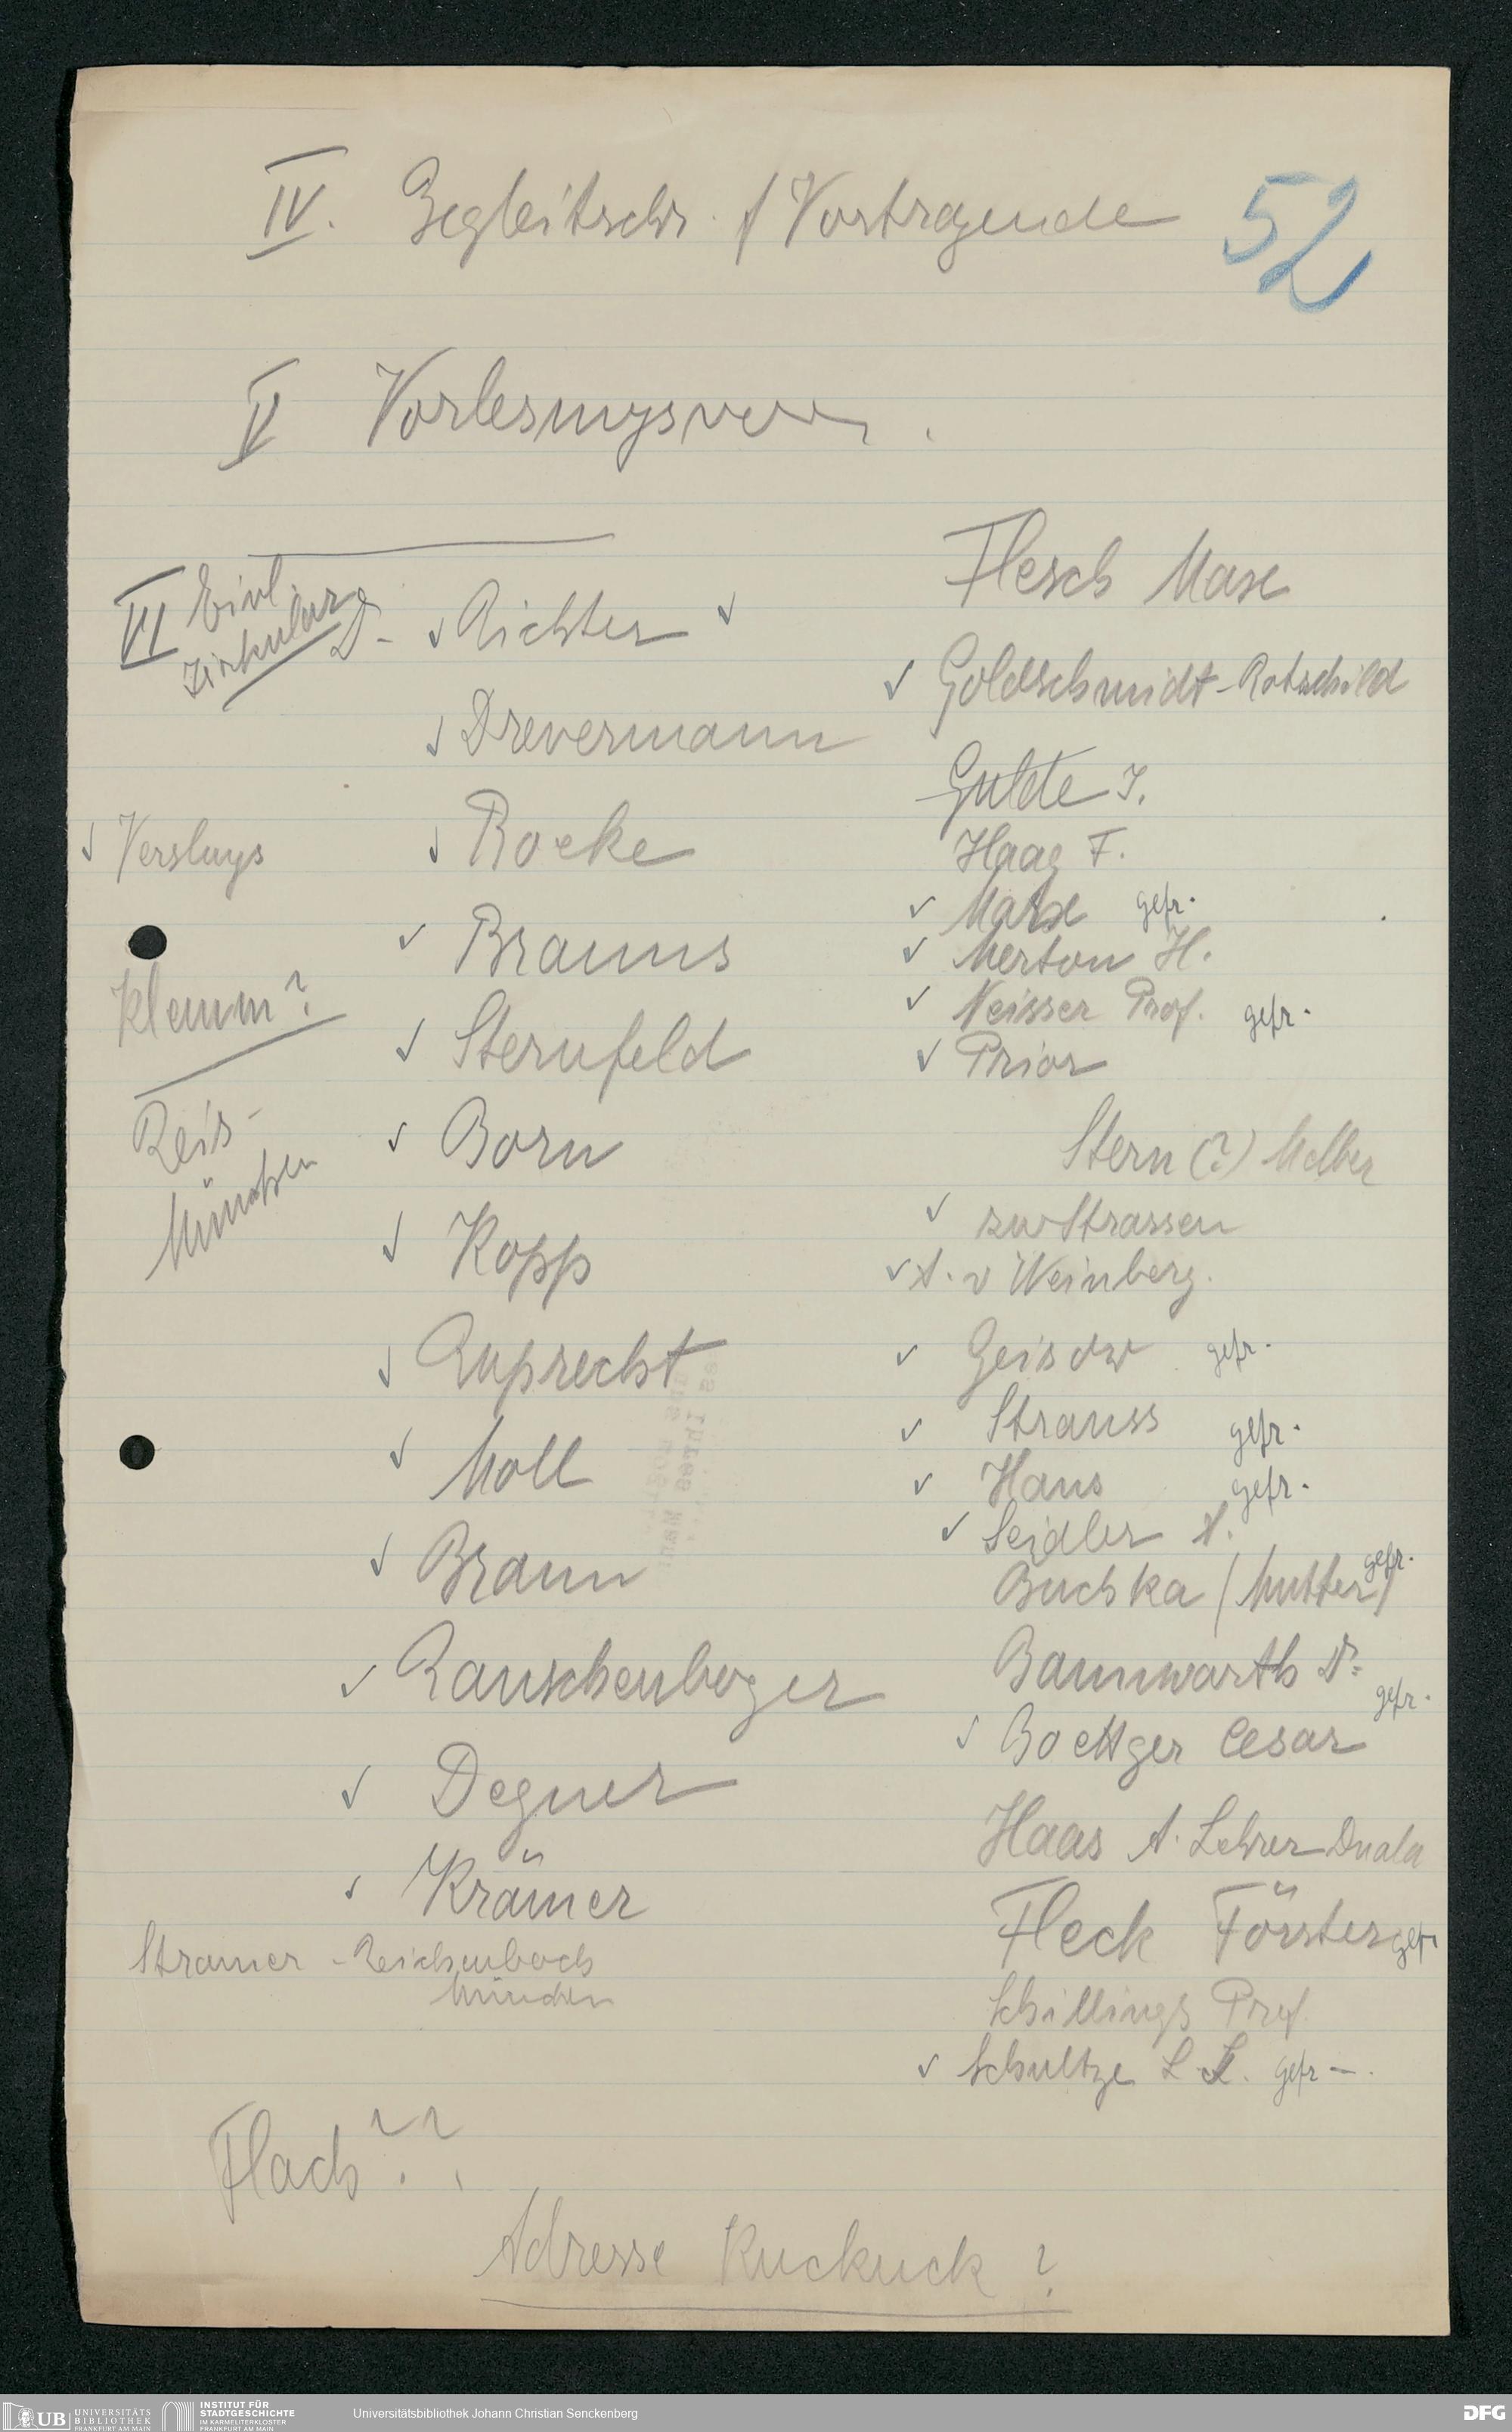 IV. Begleitschr. f Vortragende
52
V Vorlesungsverz.
VI Einl. Zirkular
Dr. ✓ Richter ✓
✓ Drevermann
✓ Versluys
✓ Boeke
✓ Brauns
Klemm?
✓ Sternfeld
Reis-
München
✓ Born
✓ Kopp
✓ Ruprecht
✓ Moll
✓ Braun
✓ Rauschenberger
✓ Degner
✓ Krämer
Stromer - Reichenbach
München
Flesch Max
✓ Goldschmidt-Rotschild
Gulde J.
Haag F.
✓ Marx gefr.
✓ Merton H.
✓ Neisser Prof. gefr.
✓ Prior
Stern (?) Melber
✓ zur Strassen
✓ A. v Weinberg.
✓ Geisow gefr.
✓ Strauss gefr.
✓ Hans gefr.
✓ Seidler A.
Buchka (Mutter) gefr.
Bannwarth Dr. gefr.
✓ Boettger Cesar
Haas A. Lehrer Duala
Fleck Förster gefr
Schillings Prof.
✓ Schultze L gefr -.
Flach ??
Adresse Kuckuck ?
UB UNIVERSITÄTS
BIBLIOTHEK
FRANKFURT AM MAIN
INSTITUT FÜR
STADTGESCHICHTE
IM KARMELITERKLOSTER
FRANKFURT AM MAIN
Universitätsbibliothek Johann Christian Senckenberg
DFG